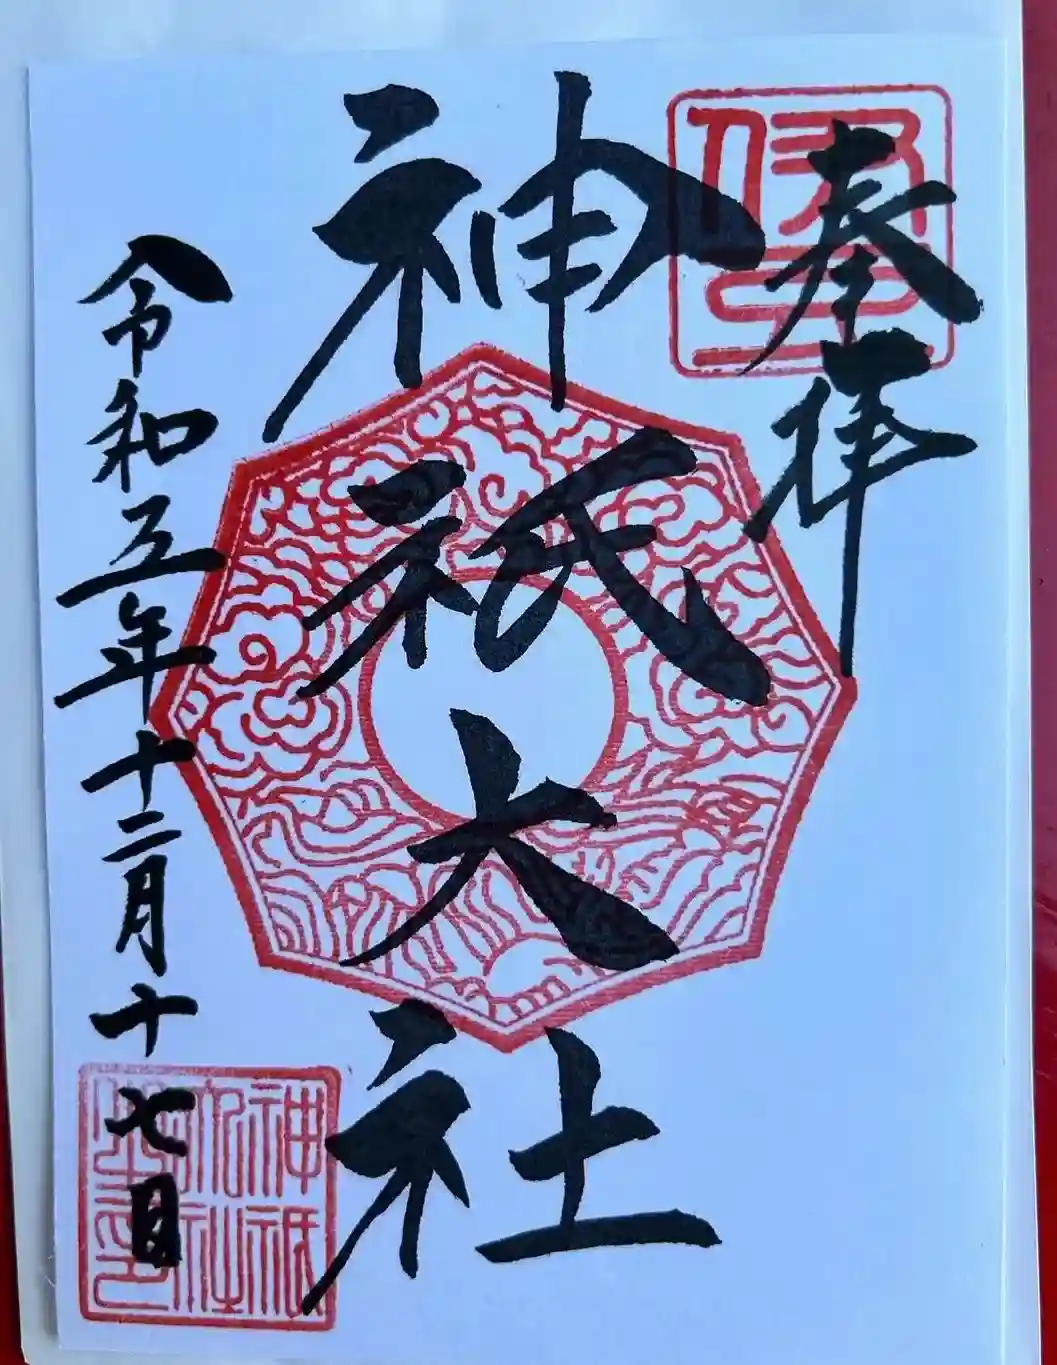 奉拝
神祇大社
令和五年十二月十七日
神祇
大社